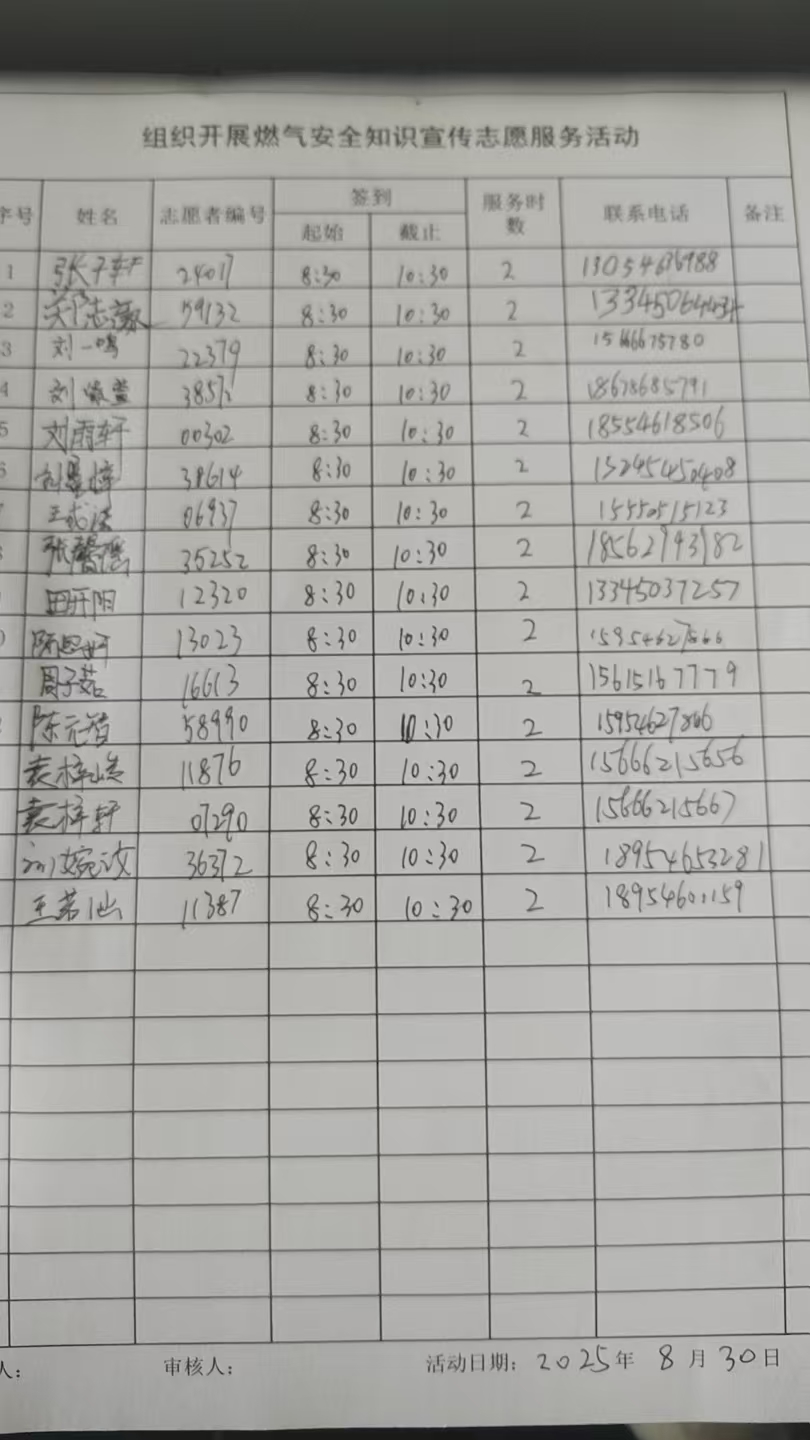 组织开展燃气安全知识宣传志愿服务活动
序号 姓名 志愿者编号 签到 服务时数 联系电话 备注
起始 截止
1 张子轩 24017 8:30 10:30 2
2 59132 8:30 10:30 2
3 刘一鸣 22379 8:30 10:30 2
4 刘 8:30 10:30 2 18678685791
5 刘雨轩 00302 8:30 10:30 2 18554618506
6 38614 8:30 10:30 2 15245450408
王 06937 8:30 10:30 2 15550515123
张馨 35252 8:30 10:30 2 18562993982
田开阳 12320 8:30 10:30 2 13345037257
陈思妤 13023 8:30 10:30 2
周子茹 16613 8:30 10:30 2 15615167779
陈元智 58990 8:30 10:30 2 15954627866
袁梓皓 11876 8:30 10:30 2 15666215656
袁梓轩 07290 8:30 10:30 2 15666215667
刘婉汝 36372 8:30 10:30 2 18954653281
王若仙 11387 8:30 10:30 2 18954601159
人: 审核人: 活动日期: 2025年 8月30日